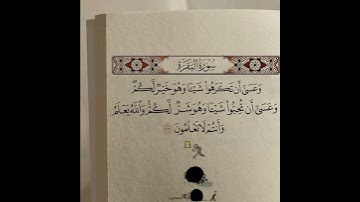 سورة البقرة
وَعَسَىٰ أَن تَكْرَهُوا شَيْئًا وَهُوَ خَيْرٌ لَّكُمْ ۖ
وَعَسَىٰ أَن تُحِبُّوا شَيْئًا وَهُوَ شَرٌّ لَّكُمْ ۗ وَاللَّهُ يَعْلَمُ
وَأَنتُمْ لَا تَعْلَمُونَ